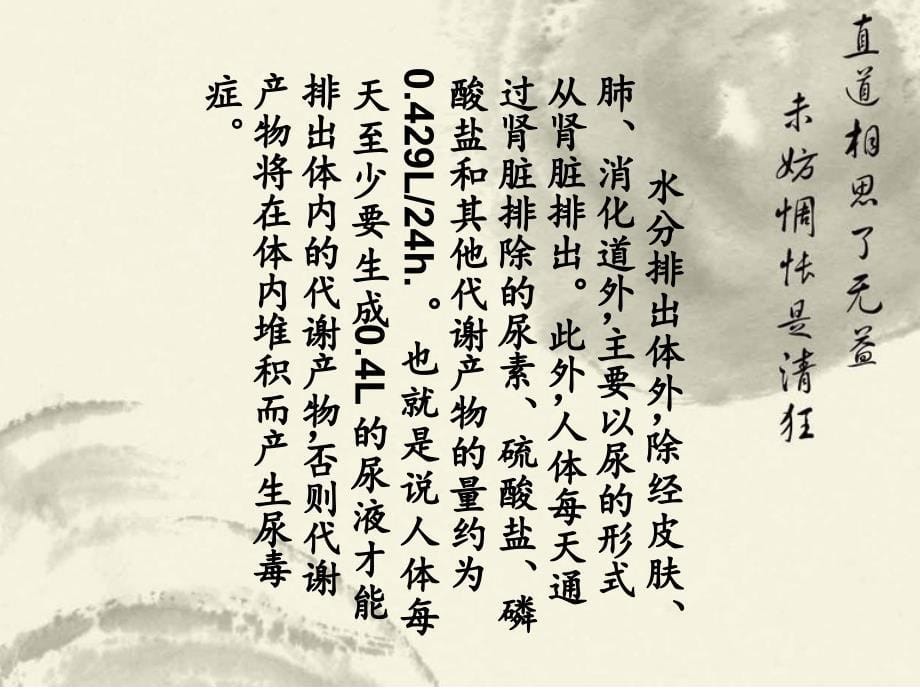 直道相思了无益
未妨惆怅是清狂
水分排出体外,除经皮肤、
肺、消化道外,主要以尿的形式
从肾脏排出。此外,人体每天通
过肾脏排除的尿素、硫酸盐、磷
酸盐和其他代谢产物的量约为
0.429L/24h.。也就是说人体每
天至少要生成0.4L的尿液才能
排出体内的代谢产物,否则代谢
产物将在体内堆积而产生尿毒
症。